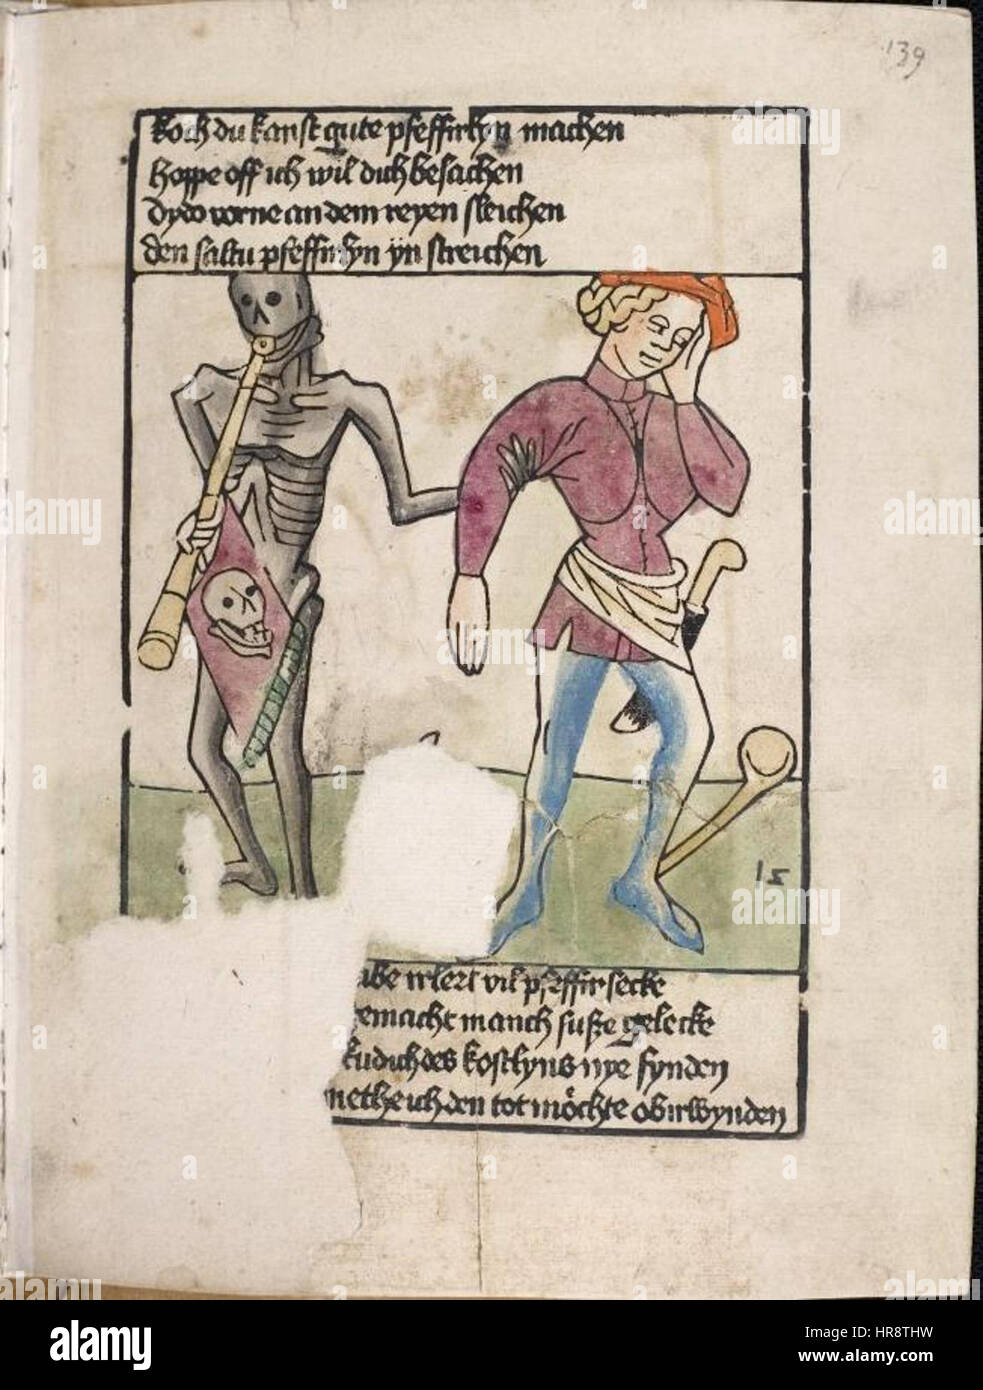 139
koch du kanst gute pfeffirkyn machen
hoppe off ich wil dich besachen
dydo vorne an dem reyen sleichen
den saltu pfeffirkyn yn streichen
15
abe irlert vil pfeffirsecke
gemacht manch suße gelecke
kudich des kostlyns nye fynden
methe ich den tot möchte obirwynden
alamy
Image ID: HR8THW
www.alamy.com